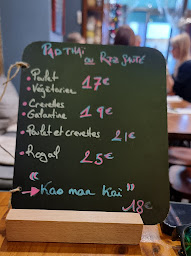 PAD THAÏ
ou RIZ SAUTÉ
• Poulet
• Végétarien 17€
• Crevettes
• Galantine 19€
• Poulet et crevettes 21€
• Royal 25€
"Kao man Kaï"
18€